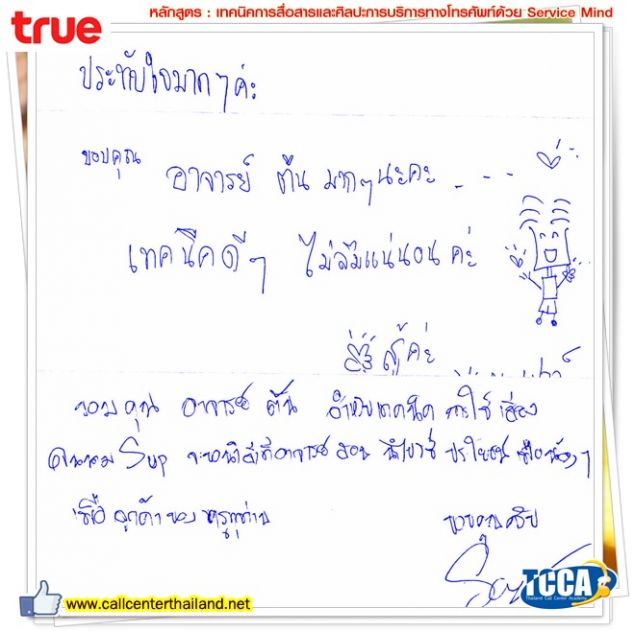 true
หลักสูตร : เทคนิคการสื่อสารและศิลปะการบริการทางโทรศัพท์ด้วย Service Mind
ประทับใจมากๆค่ะ
ขอบคุณ อาจารย์ ตั้น มากๆนะคะ
เทคนิคดีๆ ไม่ลืมแน่นอนค่ะ
สู้ค่ะ
ขอบคุณ อาจารย์ ตั้น สำหรับเทคนิค การใช้เสียง
Sup จะนำสิ่งที่อาจารย์ สอน ไปใช้ ประโยชน์
ลูกค้าของ ทรูทุกท่าน
ขอบคุณครับ
TCCA
Thailand Call Center Academy
www.callcenterthailand.net